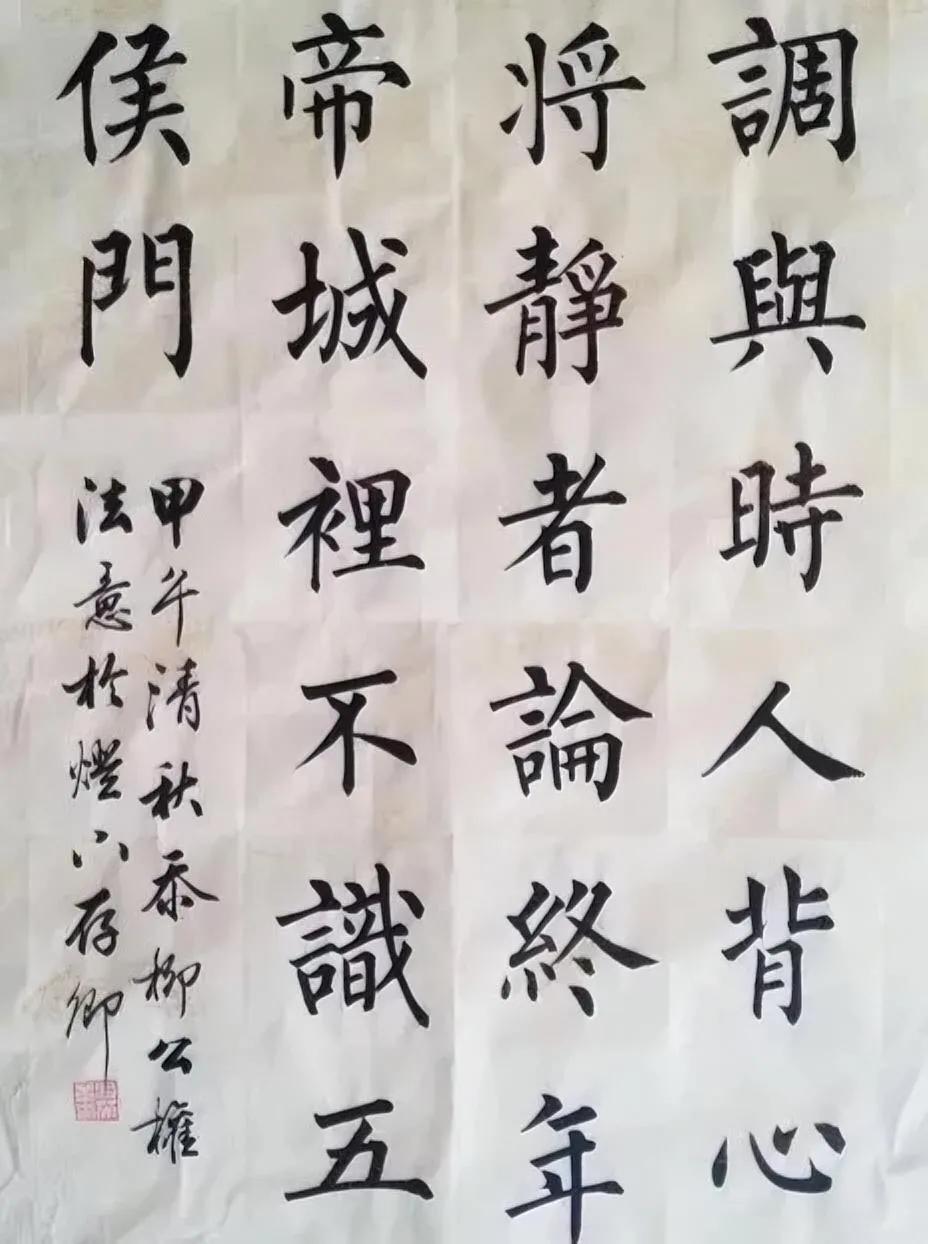 調與時人背心
將靜者論終年
帝城裡不識五
侯門
甲午清秋柳公權
法意於燈下存卿